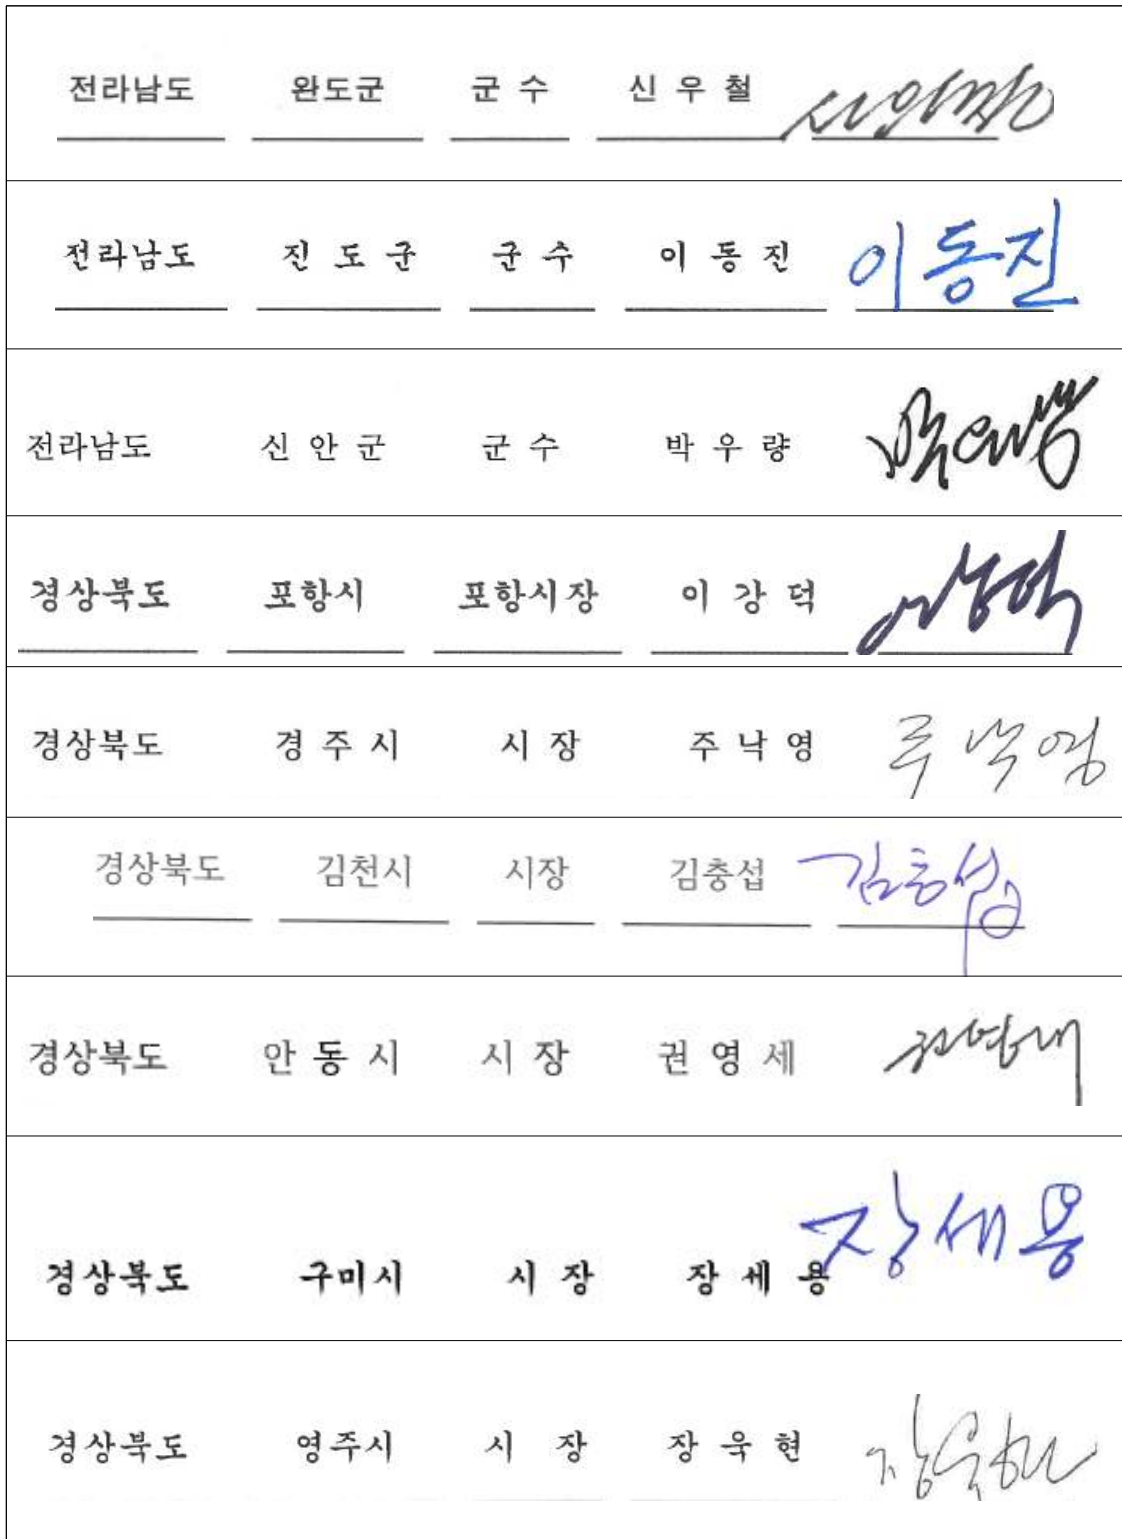 전라남도 완도군 군 수 신 우 철
전라남도 진 도 군 군 수 이 동 진 이동진
전라남도 신 안 군 군 수 박 우 량
경상북도 포항시 포항시장 이 강 덕
경상북도 경 주 시 시 장 주 낙 영 주낙영
경상북도 김천시 시장 김충섭 김충섭
경상북도 안 동 시 시 장 권 영 세 권영세
경상북도 구미시 시 장 장 세 용 장세용
경상북도 영주시 시 장 장 욱 현 장욱현